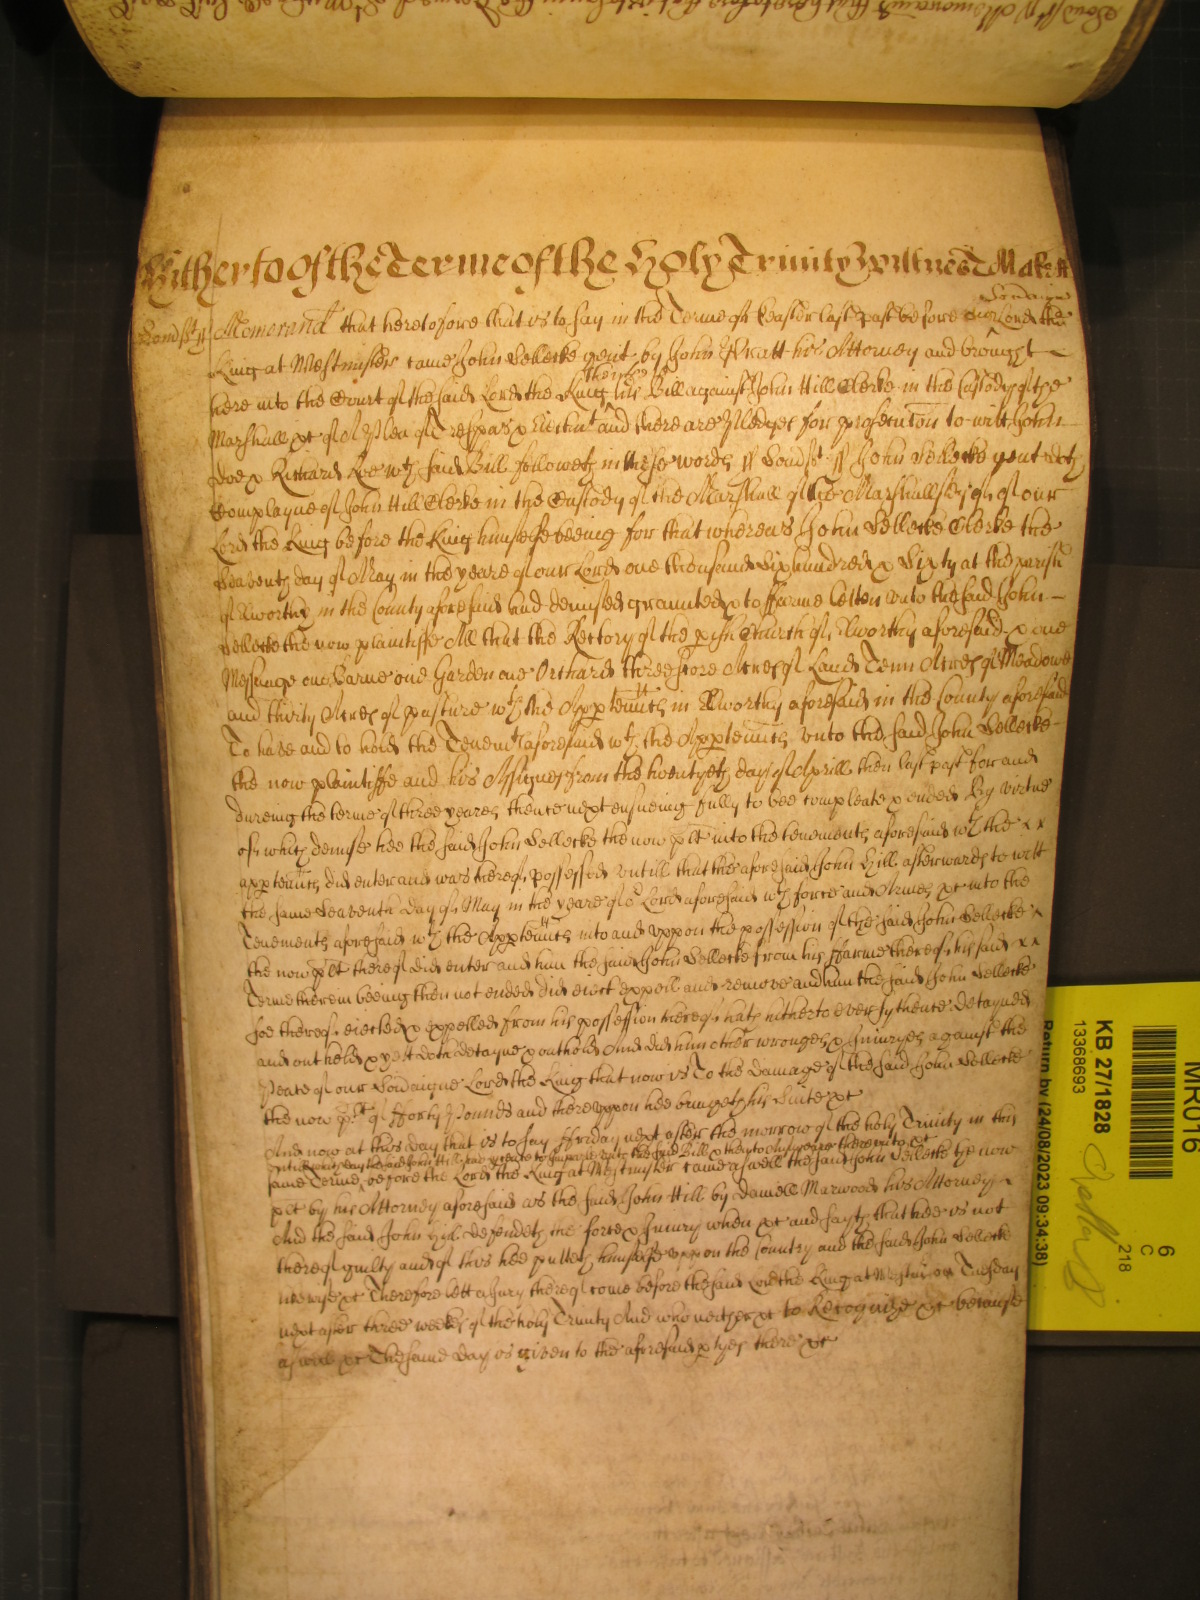 Hitherto of the Terme of the Holy Trinity Wittnes T Makett
Somsst ss Memorand that heretofore that is to say in the Terme of Easter last past before our Soveraigne Lord the
King at Westminster came John Sellecke gent by John Pratt his Attorney and brought
here into the Court of the said Lord the King then there his Bill against John Hill Clerke in the Custody of the
Marshall &c of A Plea of Trespas & Eiectmt and there are Pledges for prosecution to witt John
Doe & Richard Roe wch said Bill followeth in these words ss Somsst ss John Sellecke gent doth
Complayne of John Hill Clerke in the Custody of the Marshall of the Marshallsey of our
Lord the King before the King himselfe beeing for that whereas John Sellecke Clerke the
Seaventh day of May in the yeare of our Lord one thousand Six hundred & Sixty at the parish
of Elworthy in the County aforesaid had demised graunted & to ffarme letten unto the said John
Sellecke the now plaintiffe All that the Rectory of the pish Church of Elworthy aforesaid & one
Messuage one Barne one Garden one Orchard threescore Acres of Land Tenn Acres of Meadowe
and thirty Acres of pasture wth the Apptenncs in Elworthy aforesaid in the County aforesaid
To have and to hold the Tenemts aforesaid wth the Apptenncs unto the said John Sellecke
the now plaintiffe and his Assignes from the twentyeth day of Aprill then last past for and
dureing the terme of three yeares thence next ensueing fully to bee compleate & ended By virtue
of which demise hee the said John Sellecke the now plt into the tenements aforesaid wth the
apptenncs did enter and was thereof possessed untill that the aforesaid John Hill afterwards to witt
the same Seaventh day of May in the yeare of or Lord aforesaid wth force and Armes &c into the
Tenements aforesaid wth the Apptenncs into and uppon the possession of the said John Sellecke
the now plt thereof did enter and him the said John Sellecke from his ffarme thereof his said
Terme therein beeing then not ended did eiect expell and remove and him the said John Sellecke
soe thereof eiected & expelled from his possession thereof hath hitherto ever sythence detayned
and out held & yet doth detayne & outhold And did him other wronges & Iniuryes against the
Peace of our Soveraigne Lord the King that now is To the damage of the said John Sellecke
the now plt of fforty Pounds and thereuppon hee bringeth his Suite &c
And now at this day that is to say ffriday next after the morrow of the holy Trinity in this
untill which day the said John Hill had leave to imparle unto the said Bill & then to Answeare thereunto &c
same Terme before the Lord the King at Westminster came aswell the said John Sellecke the now
plt by his Attorney aforesaid as the said John Hill by Daniell Marwood his Attorney
And the said John Hill defendeth the force & Iniury when &c and sayth that hee is not
thereof guilty and of this hee putteth himselfe uppon the Country and the said John Sellecke
likewise &c Therefore lett a Jury thereof come before the said Lord the King at Westmr on Tuesday
next after three weekes of the holy Trinity And who neither &c to Recognize &c because
as well &c The same day is given to the aforesaid ptyes there &c
MR016
6
C
218
KB 27/1828
13368693
Return by (24/08/2023 09:34:38)